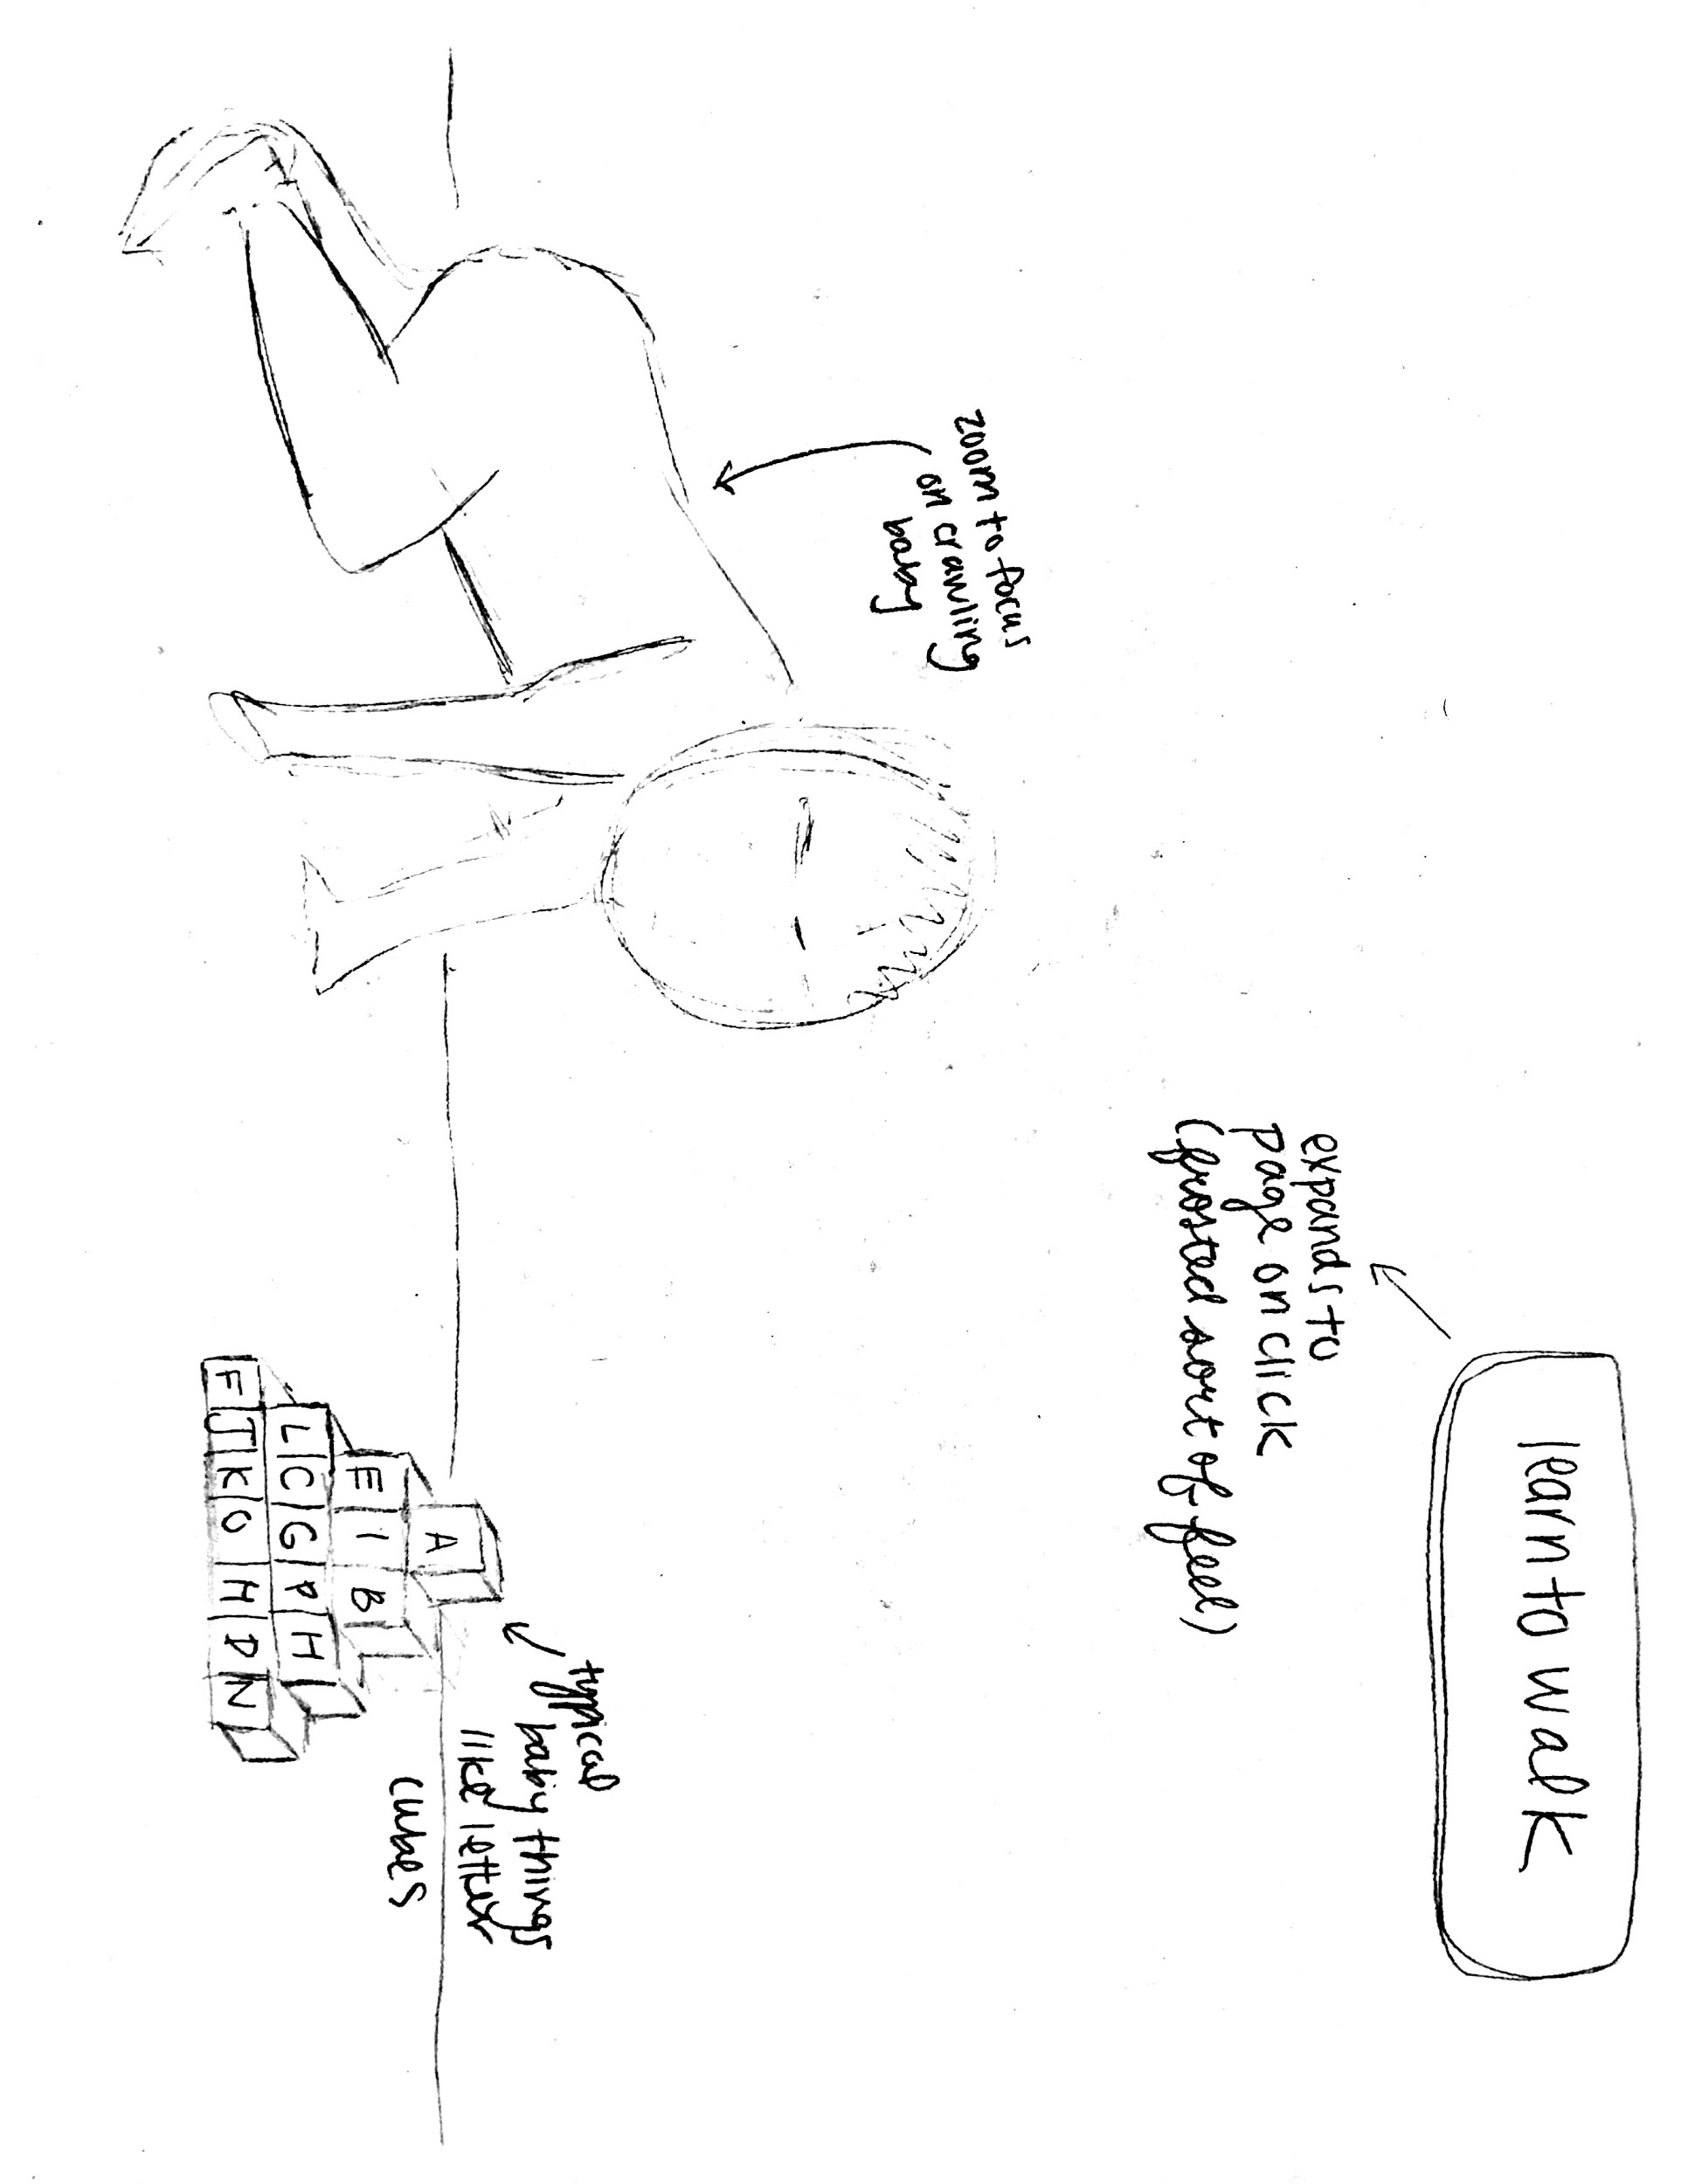 learn to walk
expands to
page on click
(frosted sort of feel)
zoom to focus
on crawling
baby
typical
baby things
like letter
cubes
A
E I B
L C G P H
F J K O M D N